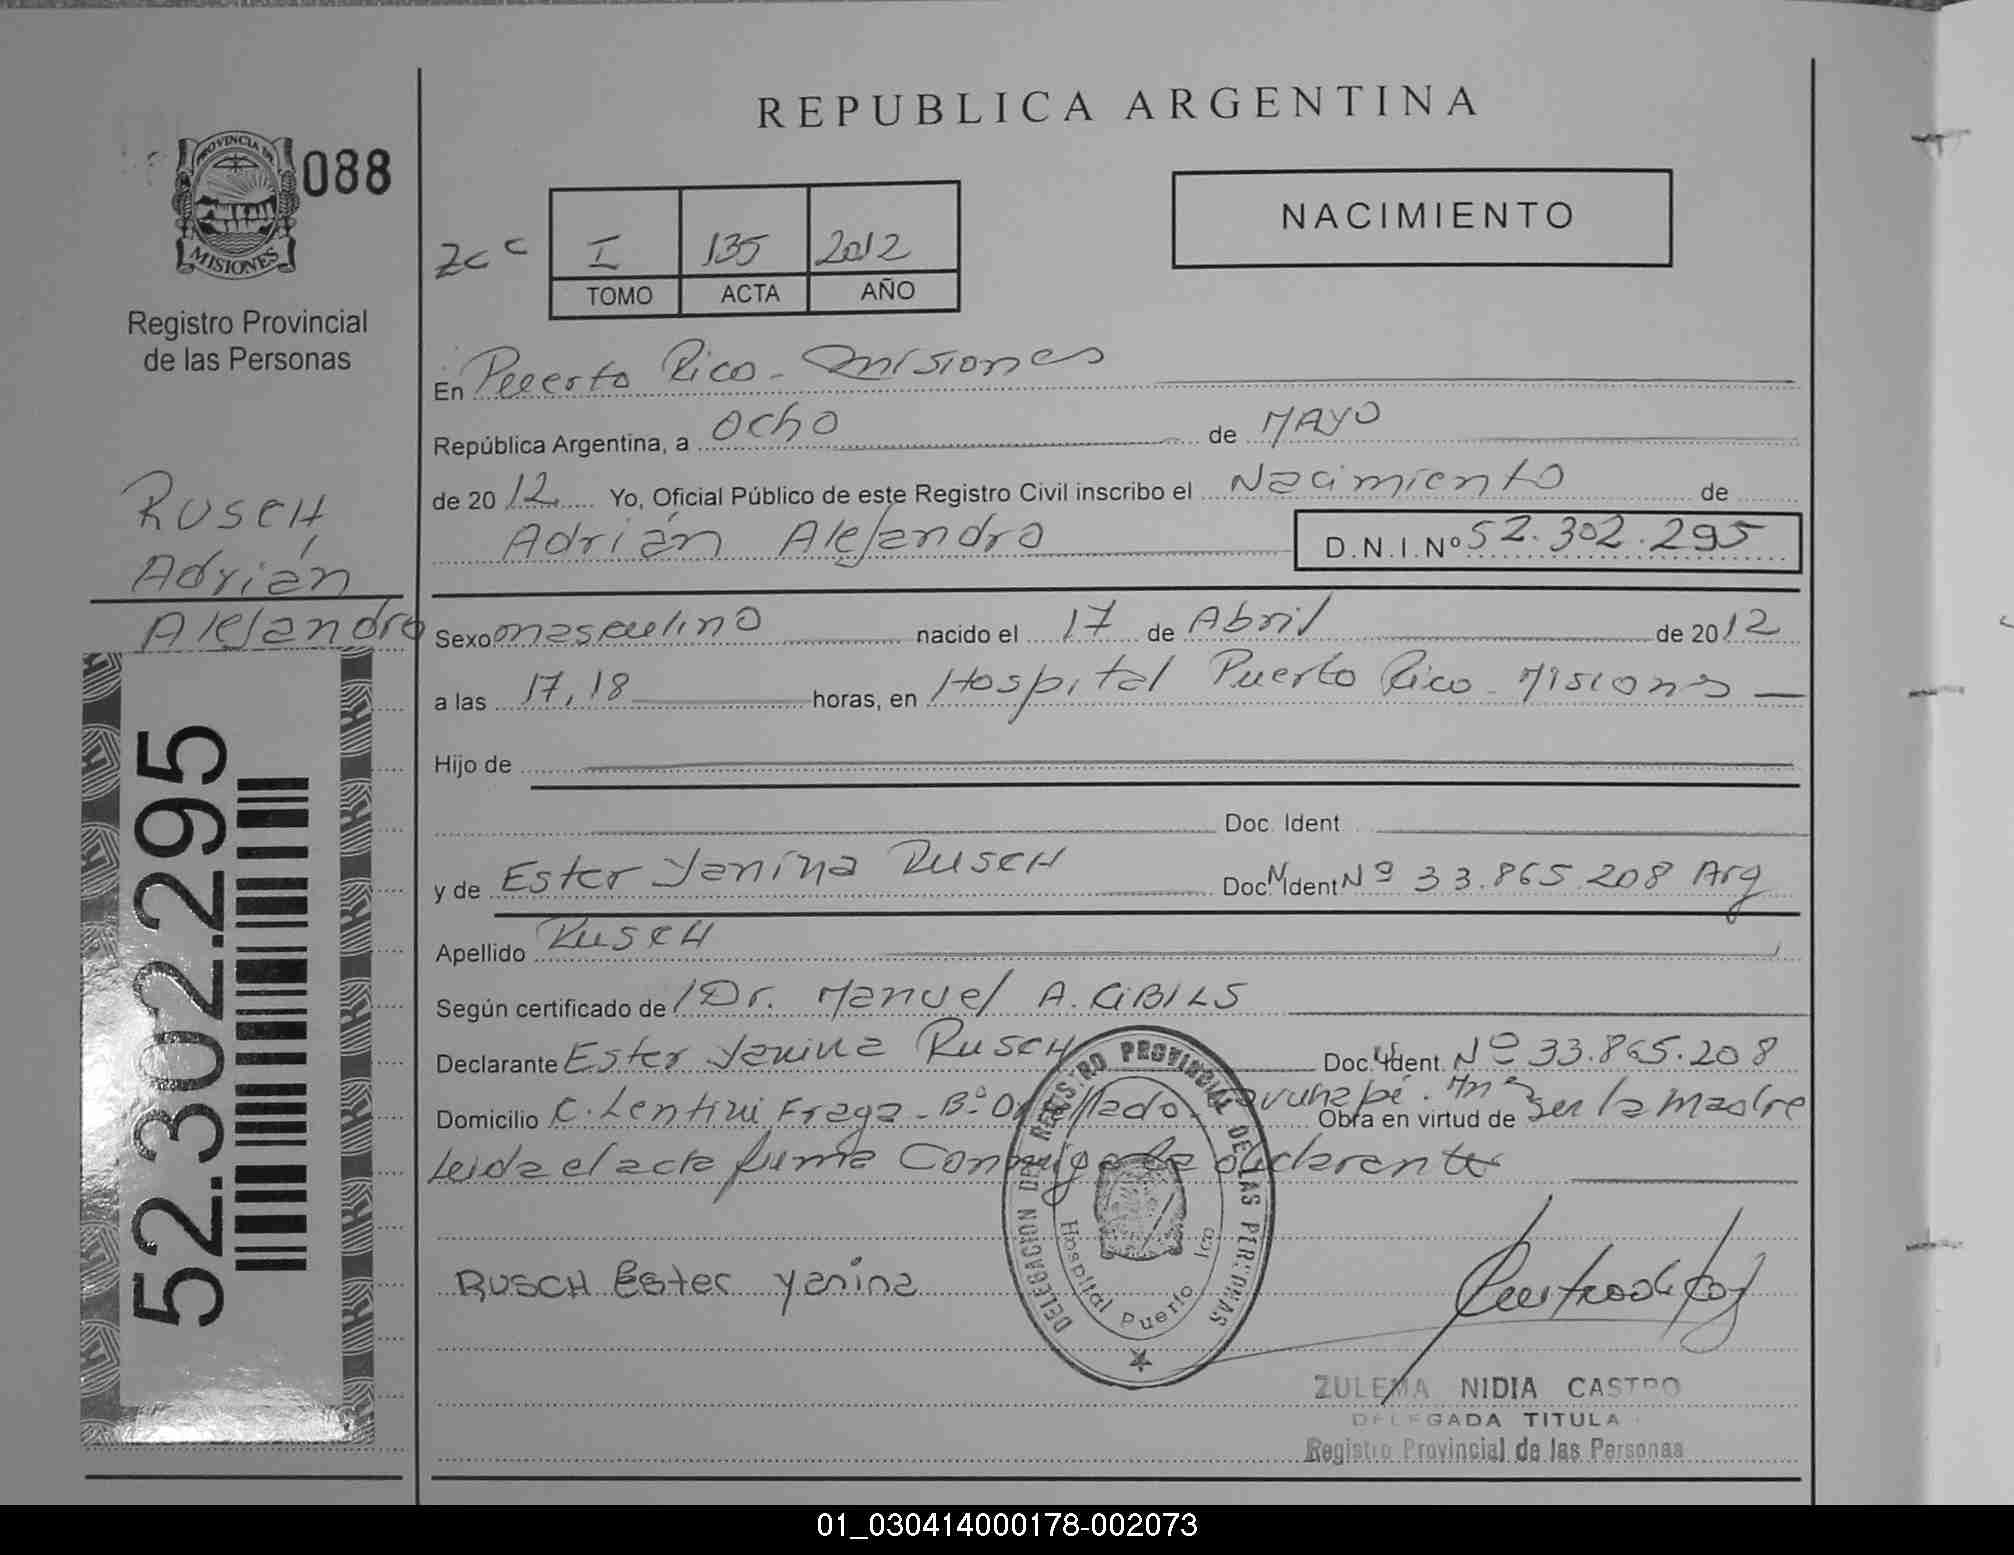 REPUBLICA ARGENTINA
PROVINCIA DE
MISIONES
088
Registro Provincial
de las Personas
NACIMIENTO
I 135 2012
TOMO ACTA AÑO
En Puerto Rico - Misiones
República Argentina, a ocho de MAYO
de 2012 Yo, Oficial Público de este Registro Civil inscribo el Nacimiento de
Adrián Alejandro D.N.I.Nº 52.302.295
RUSCH
Adrián
Alejandro
Sexo masculino nacido el 17 de Abril de 2012
a las 17,18 horas, en Hospital Puerto Rico - Misiones
Hijo de
Doc. Ident
y de Ester Yanina RUSCH Doc. Ident Nº 33.865.208 Arg
Apellido RUSCH
Según certificado de Dr. Manuel A. CiBILS
Declarante Ester Yanina RUSCH Doc. Ident. Nº 33.865.208
Domicilio C. Lentini Fraga - Bº Obra en virtud de Ser la madre
Leida el acta firma Conmigo la declarante
RUSCH Ester Yanina
DELEGACION DEL REGISTRO PROVINCIAL DE LAS PERSONAS
Hospital Puerto ico
ZULEMA NIDIA CASTRO
DELEGADA TITULA
Registro Provincial de las Personas
52.302.295
01_030414000178-002073